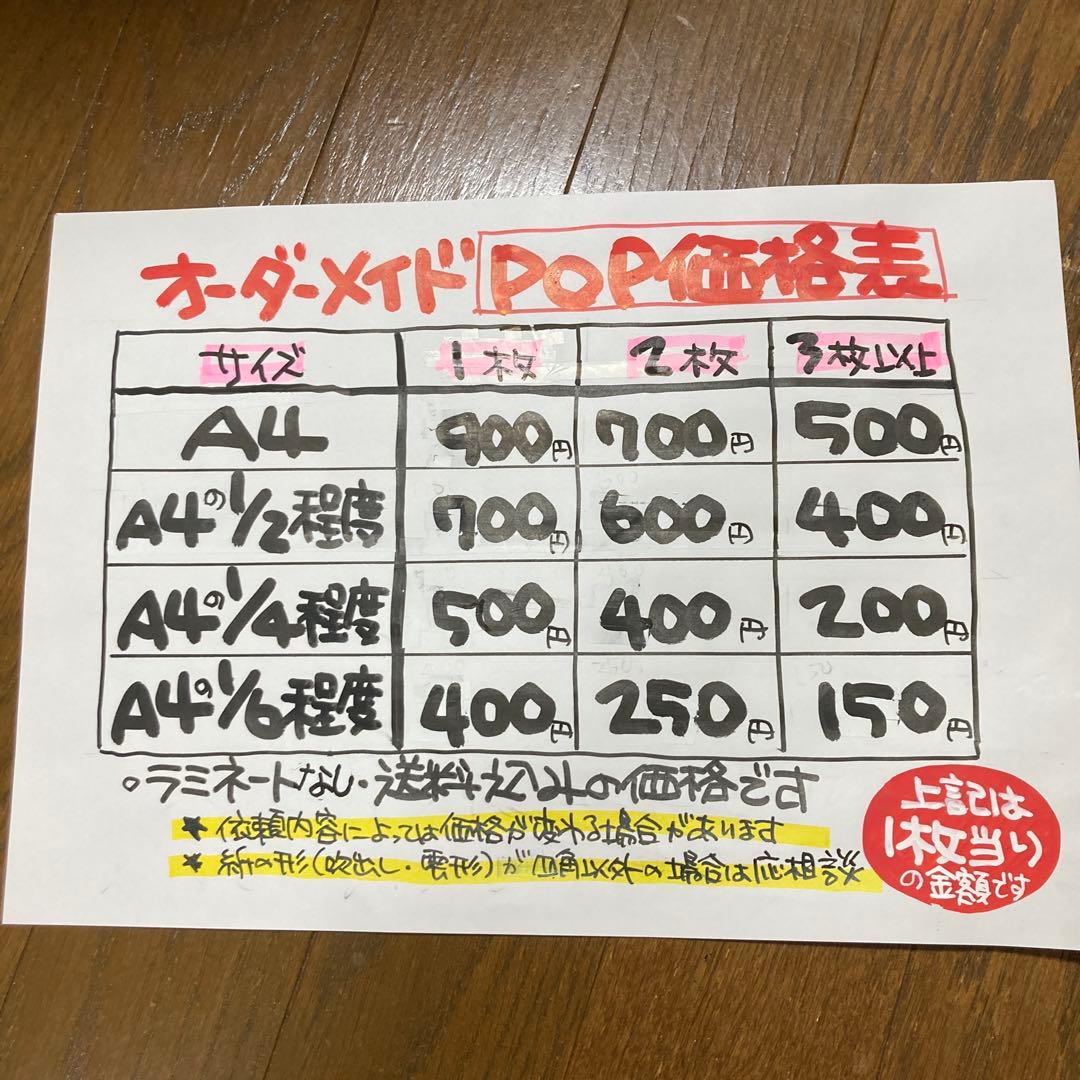 オーダーメイドPOP価格表
サイズ 1枚 2枚 3枚以上
A4 900円 700円 500円
A4の1/2程度 700円 600円 400円
A4の1/4程度 500円 400円 200円
A4の1/6程度 400円 250円 150円
。ラミネートなし・送料込みの価格です
★ 依頼内容によっては価格が変わる場合があります
★ 紙の形(吹出し・雲形)が四角以外の場合は応相談
上記は
1枚当い
の金額です